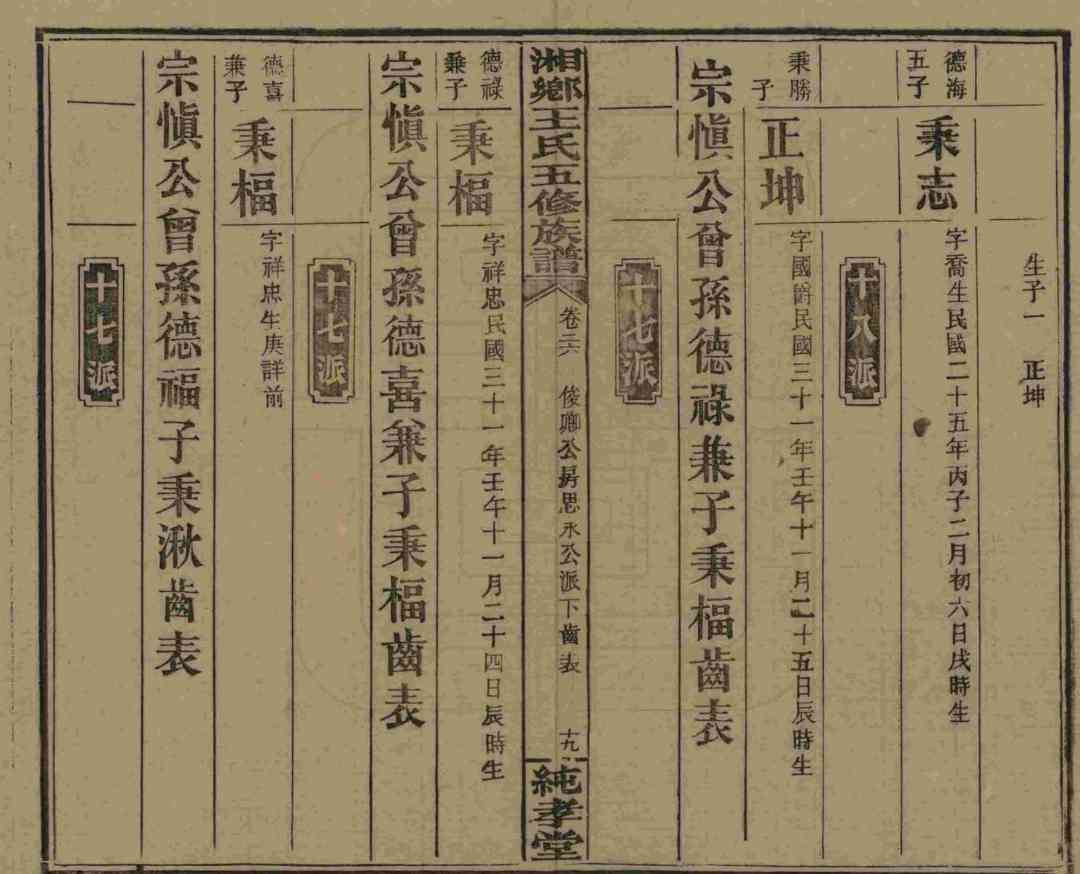 生子一 正坤
德海五子 秉志 字喬生民國二十五年丙子二月初六日戌時生
十八派
秉勝子 正坤 字國爵民國三十一年壬午十一月二十五日辰時生
宗愼公曾孫德祿兼子秉楅齒表
十七派
湘鄉王氏五修族譜 卷三六 俊卿公房思永公派下齒表 十九 純孝堂
德祿兼子 秉楅 字祥忠民國三十一年壬午十一月二十四日辰時生
宗愼公曾孫德喜兼子秉楅齒表
十七派
德喜兼子 秉楅 字祥忠生庚詳前
宗愼公曾孫德福子秉湫齒表
十七派